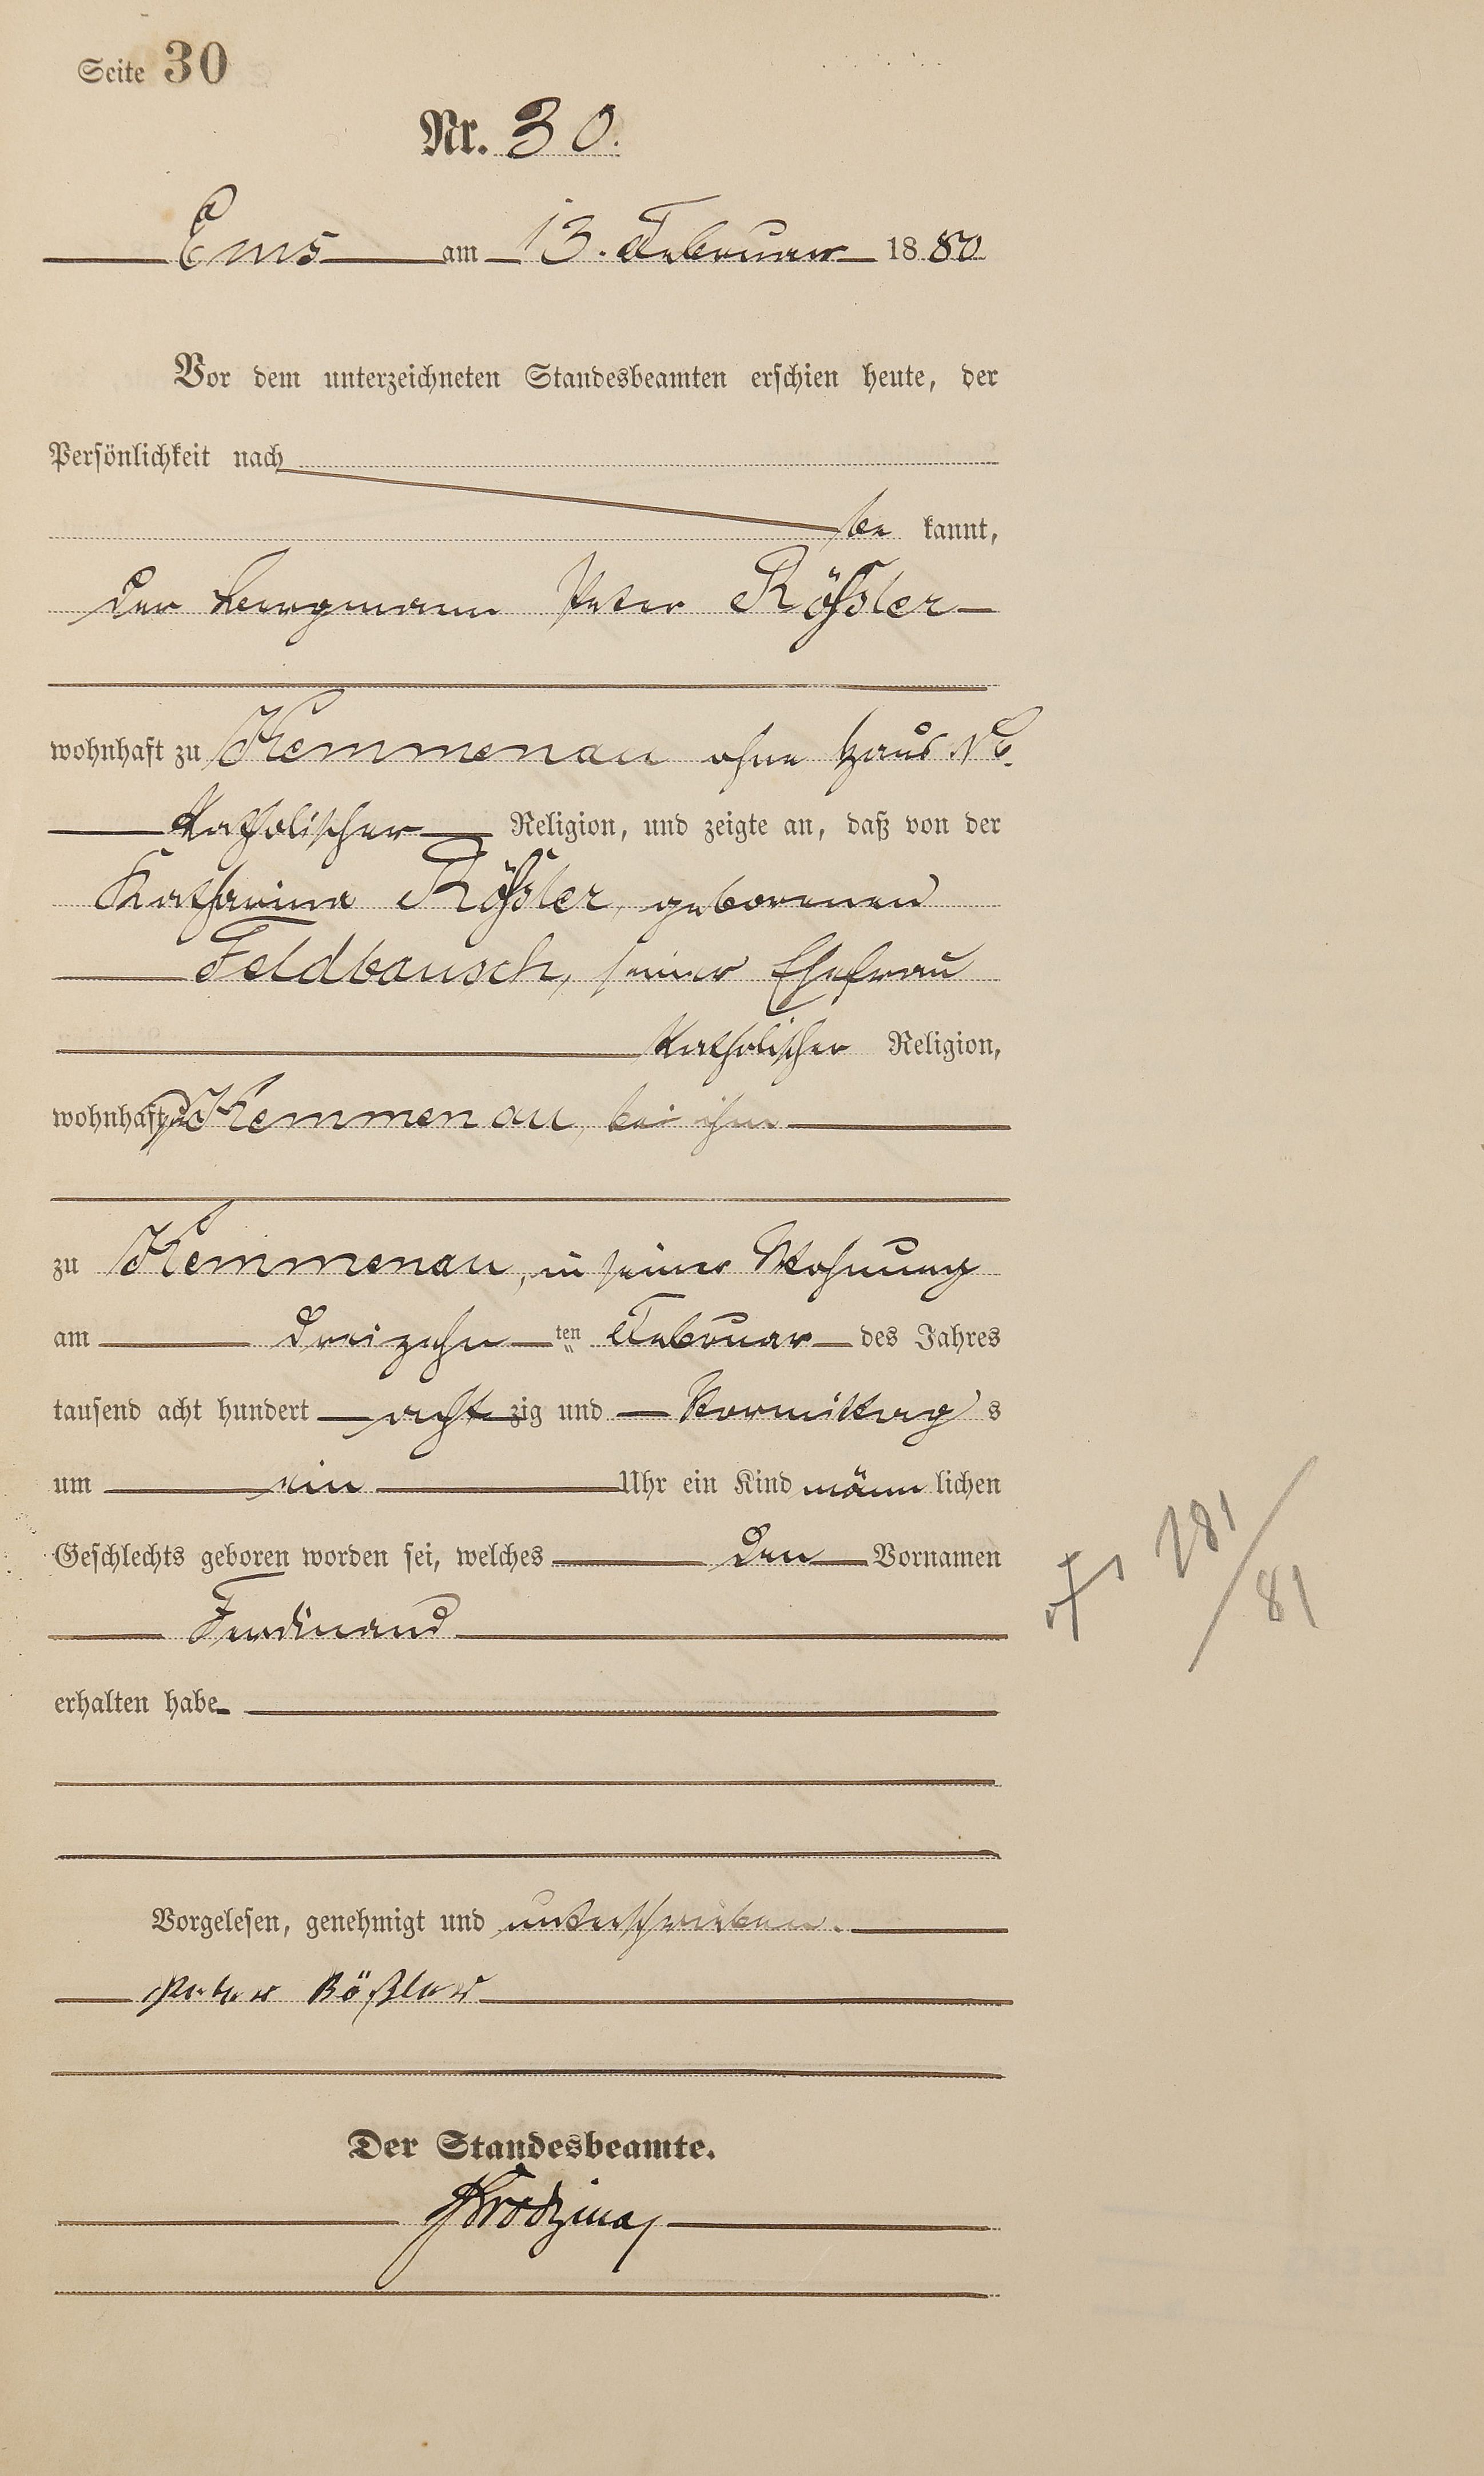 Seite 30
Nr. 30.
Ems am 13. Februar 1880
Vor dem unterzeichneten Standesbeamten erschien heute, der
Persönlichkeit nach
be kannt,
der Bergmann Peter Rößler
wohnhaft zu Kemmenau ohne Haus No.
katholischer Religion, und zeigte an, daß von der
Katharina Rößler, geborenen
Feldbausch, seiner Ehefrau
katholischer Religion,
wohnhaft zu Kemmenau, bei ihm
zu Kemmenau, in seiner Wohnung
am dreizehn ten Februar des Jahres
tausend acht hundert acht zig und Vormittag s
um ein Uhr ein Kind männ lichen
Geschlechts geboren worden sei, welches den Vornamen
Ferdinand
erhalten habe
Vorgelesen, genehmigt und unterschrieben.
Peter Rößler
Der Standesbeamte.
181/81